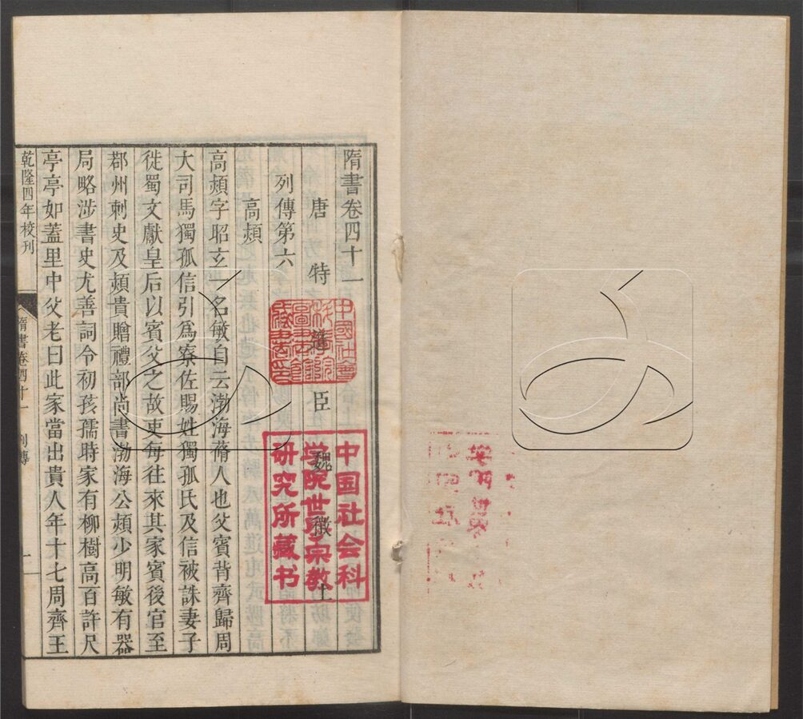 隋書卷四十一
唐特進臣魏徵上
列傳第六
高熲
高熲字昭玄一名敏自云渤海蓨人也父賓背齊歸周
大司馬獨孤信引爲寮佐賜姓獨孤氏及信被誅妻子
徙蜀文獻皇后以賓父之故吏每往來其家賓後官至
鄀州刺史及熲貴贈禮部尚書渤海公熲少明敏有器
局略涉書史尤善詞令初孩孺時家有柳樹高百許尺
亭亭如蓋里中父老曰此家當出貴人年十七周齊王
乾隆四年校刊
隋書卷四十一 列傳
中国社会科
学院世界宗教
研究所藏书